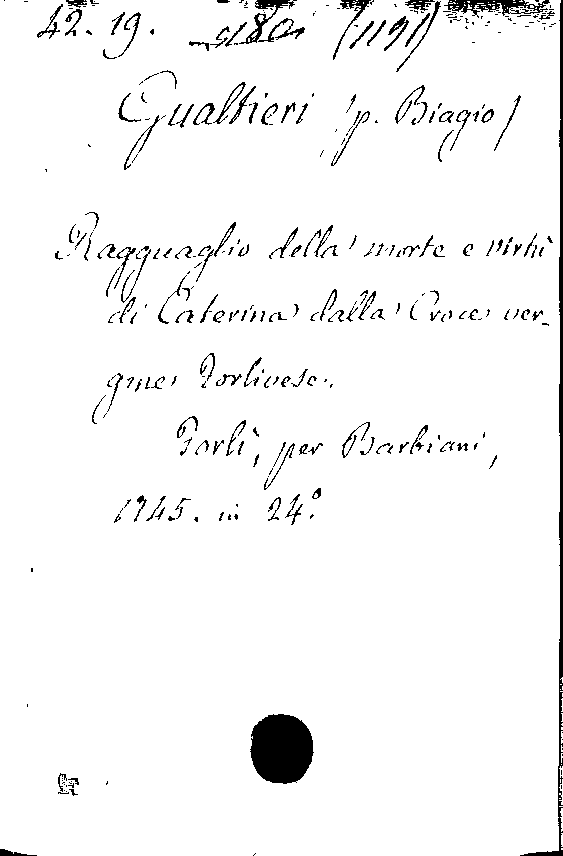 42. 19. (1191)
Gualtieri (p. Biagio)
Ragguaglio della morte e virtù
di Caterina dalla Croce ver-
gine Forlivese.
Forlì, per Barbiani,
1745. in 24.º